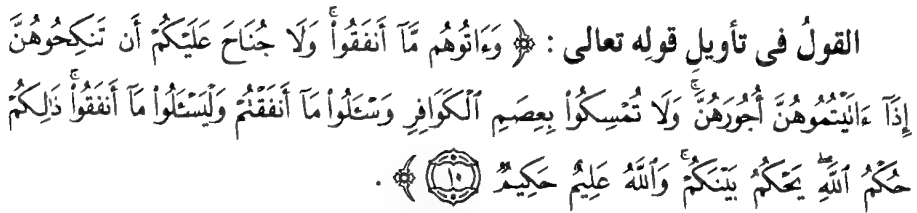 القولُ فى تأويلِ قولِه تعالى : ﴿ وَءَاتُوهُم مَّآ أَنفَقُوا۟ ۚ وَلَا جُنَاحَ عَلَيْكُمْ أَن تَنكِحُوهُنَّ
إِذَآ ءَاتَيْتُمُوهُنَّ أُجُورَهُنَّ ۚ وَلَا تُمْسِكُوا۟ بِعِصَمِ ٱلْكَوَافِرِ وَسْـَٔلُوا۟ مَآ أَنفَقْتُمْ وَلْيَسْـَٔلُوا۟ مَآ أَنفَقُوا۟ ۚ ذَٰلِكُمْ
حُكْمُ ٱللَّهِ ۖ يَحْكُمُ بَيْنَكُمْ ۚ وَٱللَّهُ عَلِيمٌ حَكِيمٌ ١٠ ﴾ .